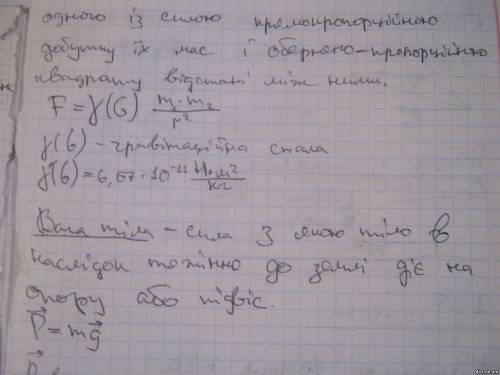 одного із силою прямопропорційною
добутку їх мас і оберенено-пропорційною
квадрату відстані між ними.
F = γ(G) m₁·m₂/r²
γ(G) - гравітаційна стала
γ(G) = 6,67·10⁻¹¹ Н·м²/кг
Вага тіла - сила з якою тіло в
наслідок тяжіння до землі діє на
опору або підвіс.
P⃗ = mg⃗